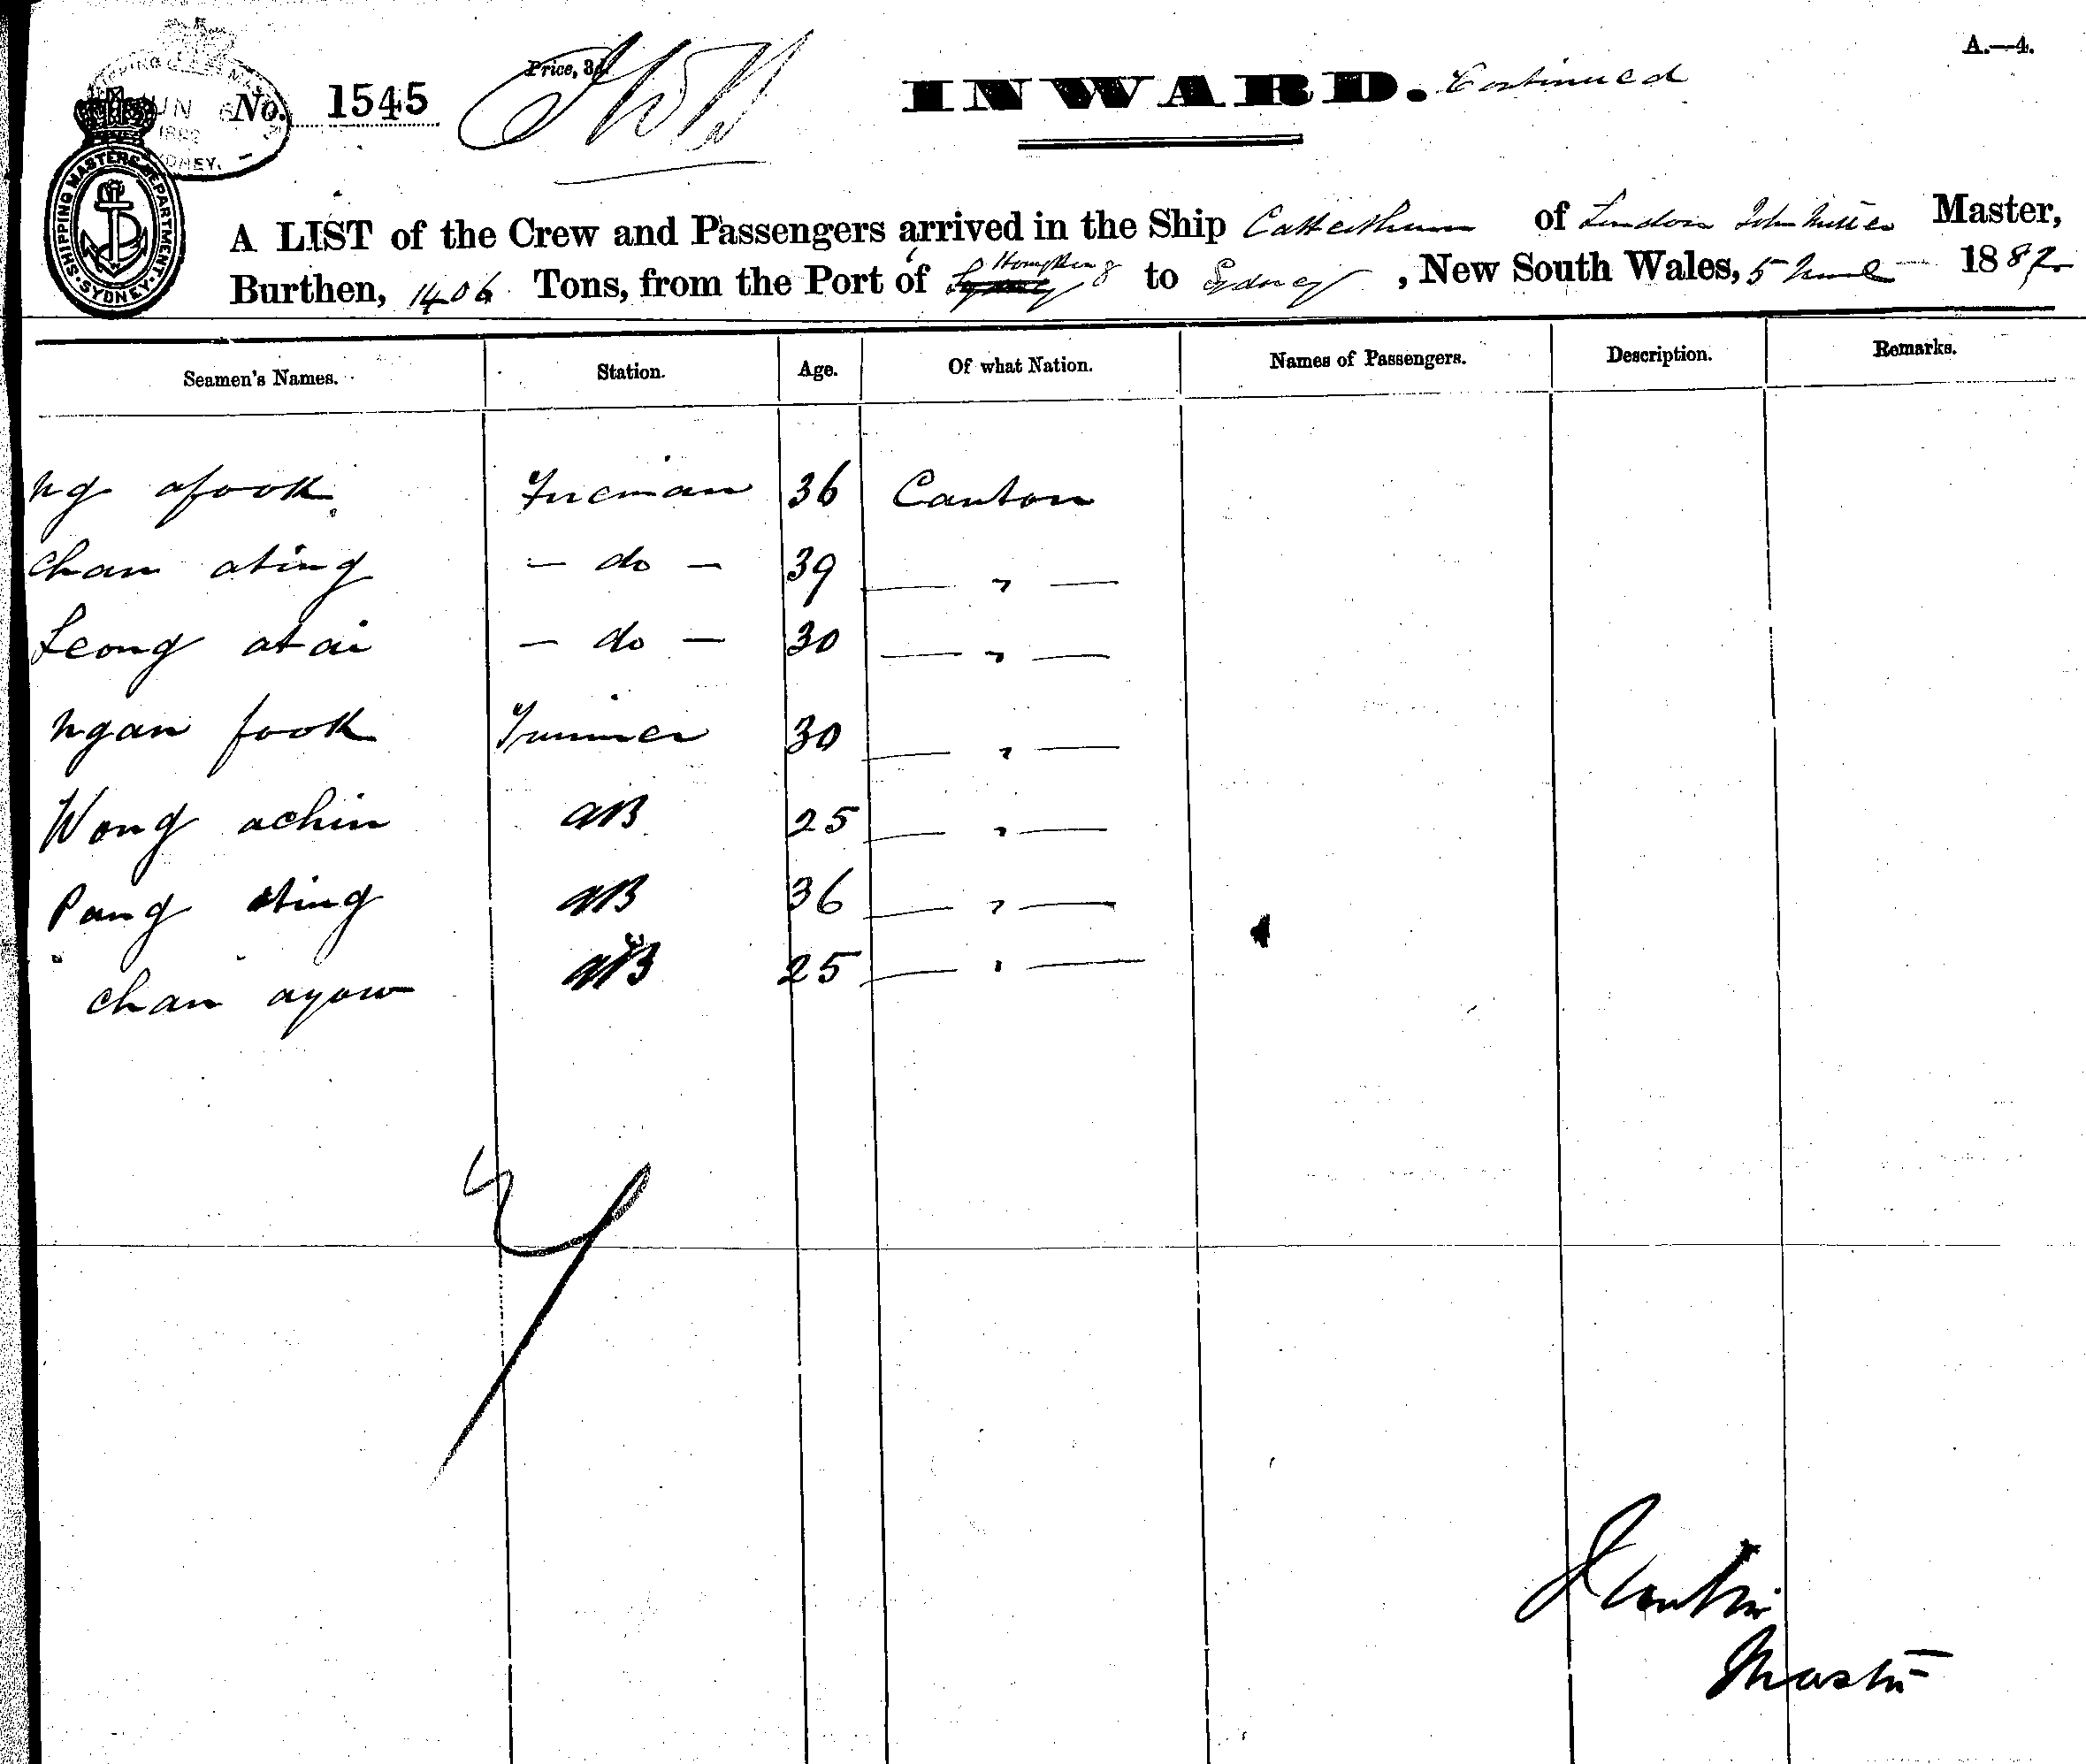 A.—4.
No. 1545 Price, 3d. INWARD. Continued
SHIPPING MASTERS DEPARTMENT. SYDNEY.
A LIST of the Crew and Passengers arrived in the Ship Catterthun of London John Miller Master,
Burthen, 1406 Tons, from the Port of Hong Kong to Sydney, New South Wales, 5 June 1882
Seamen's Names. Station. Age. Of what Nation. Names of Passengers. Description. Remarks.
Ng afook Fireman 36 Canton
Chan ating — do — 39 — " —
Leong atai — do — 30 — " —
Ngan fook Trimmer 30 — " —
Wong achin AB 25 — " —
Pang ating AB 36 — " —
Chan ayow AB 25 — " —
Master